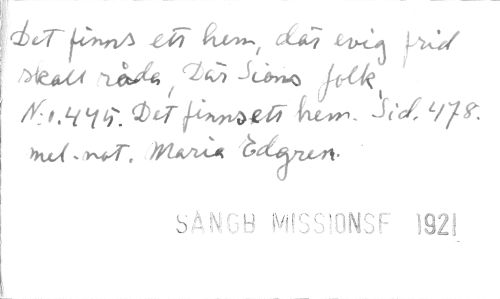 Det finns ett hem, där evig frid
skall råda, Där Sions folk,
N:o. 445. Det finns ett hem. Sid. 478.
mel. not. Maria Edgren.
SÅNGB MISSIONSF 1921